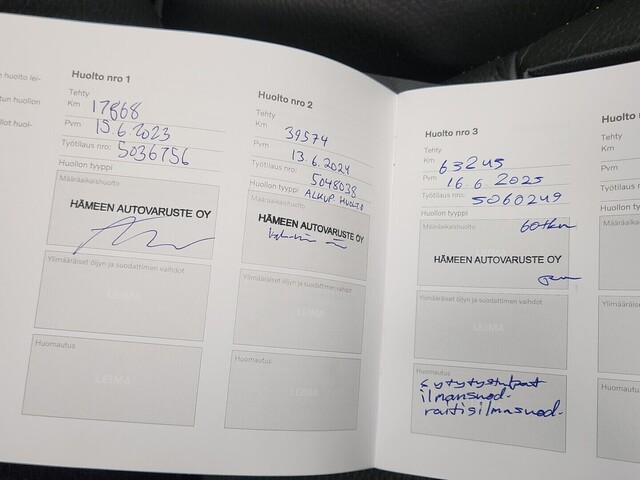 n huolto lei-
tun huollon
llot huol-
Huolto nro 1
Tehty
Km 17868
Pvm 15.6.2023
Työtilaus nro: 5036756
Huollon tyyppi
Määräaikaishuolto
HÄMEEN AUTOVARUSTE OY
Ylimääräiset öljyn ja suodattimen vaihdot
Huomautus
LEIMA
Huolto nro 2
Tehty
Km 39574
Pvm 13.6.2024
Työtilaus nro: 5048038
Huollon tyyppi ALKUP. HUOLTO
Määräaikaishuolto
HÄMEEN AUTOVARUSTE OY
Ylimääräiset öljyn ja suodattimen vaihdot
LEIMA
Huomautus
LEIMA
Huolto nro 3
Tehty
Km 63245
Pvm 16.6.2025
Työtilaus nro: 5060249
Huollon tyyppi
Määräaikaishuolto 60tkm
HÄMEEN AUTOVARUSTE OY
Ylimääräiset öljyn ja suodattimen vaihdot
LEIMA
Huomautus
sytytystulpat
ilmansuod-
raitisilmasuod-
Huolto n
Tehty
Km
Pvm
Työtilau
Huollon ty
Määräaika
Ylimääräi
Huomaut